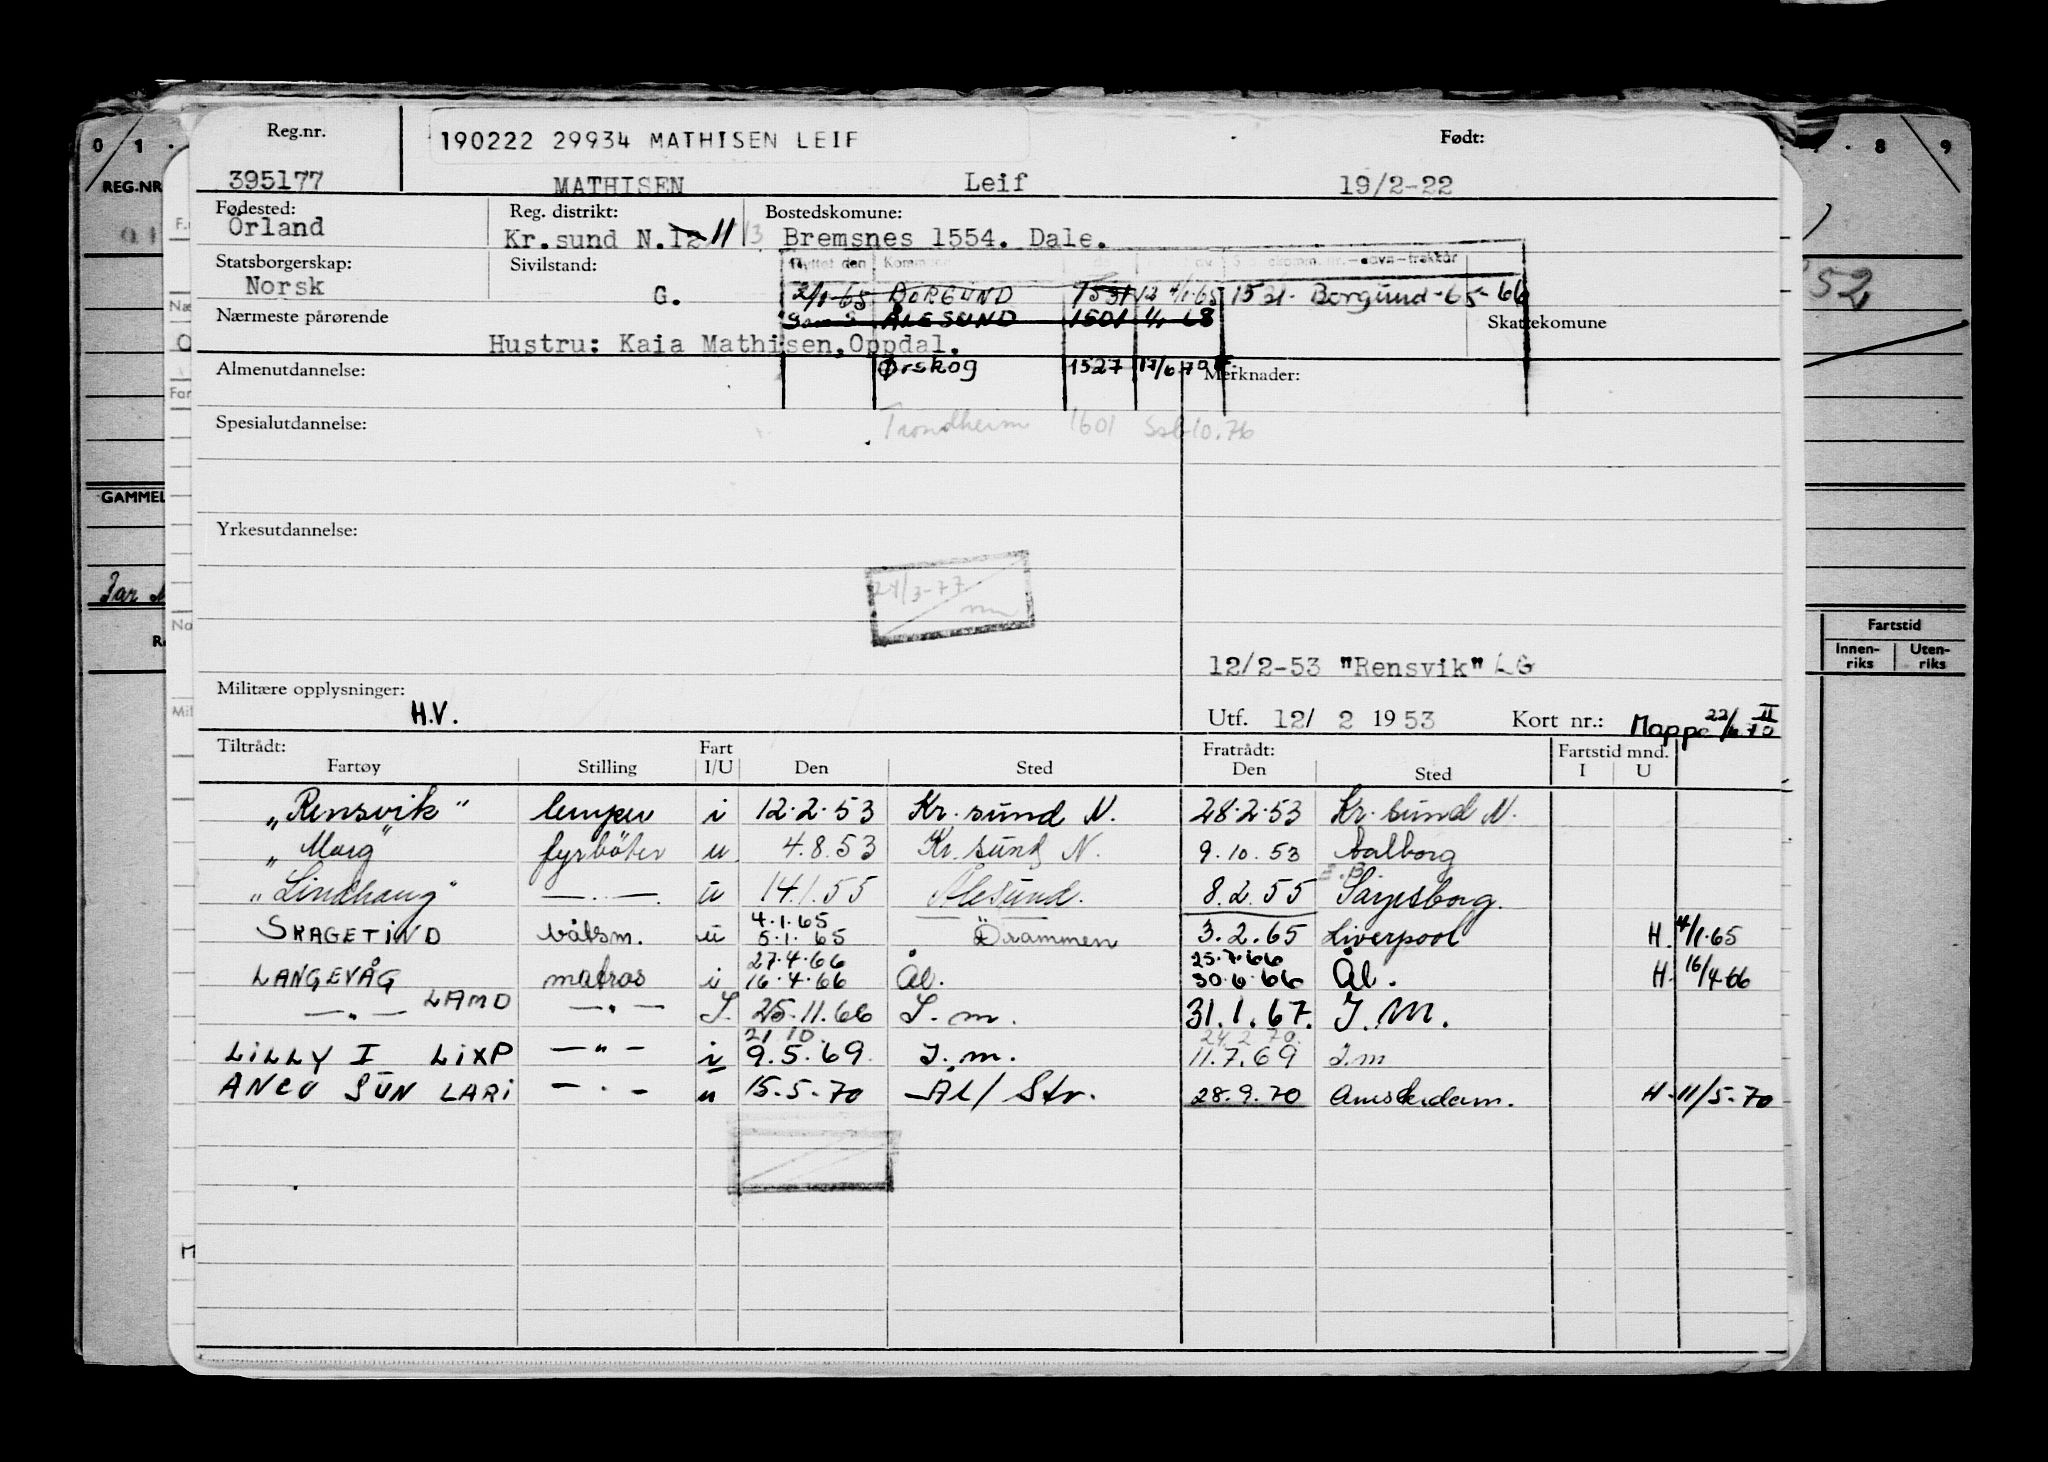 Reg.nr. 190222 29934 MATHISEN LEIF Født:
395177 MATHISEN Leif 19/2-22
Fødested: Reg. distrikt: Bostedskomune:
Örland Kr.sund N. 12 11 13 Bremsnes 1554. Dale.
Statsborgerskap: Sivilstand: Flyttet den
Norsk G. 2/1-65 BORGUND 1531 4/1-65 1531- Borgund-65-66
Nærmeste pårørende ÅLESUND 1501 1/1 68 Skattekomune
Hustru: Kaia Mathisen, Oppdal.
Almenutdannelse: Ørskog 1527 17/6-70 Merknader:
Spesialutdannelse: Trondheim 1601 10.76
Yrkesutdannelse:
24/3-77
12/2-53 "Rensvik" LG
Militære opplysninger:
H.V. Utf. 12/ 2 1953 Kort nr.: Mappe 22/6 70 II
Tiltrådt: Fart Fratrådt: Fartstid mnd.
Fartøy Stilling I/U Den Sted Den Sted I U
„Rensvik" lemper i 12.2.53 Kr. sund N. 28.2.53 Kr. sund N.
„Marg" fyrböter u 4.8.53 Kr. sund N. 9.10.53 Aalborg
„Lindhaug" —"— u 14.1.55 Ålesund. 8.2.55 Sarpsborg.
4.1.65
SKAGETIND båtsm. u 5.1.65 Drammen 3.2.65 Liverpool H. 4/1.65
27.4.66 25.7.66
LANGEVÅG matros i 16.4.66 Ål. 30.6.66 Ål. H. 16/4-66
—"— LAMD —"— I. 25.11.66 I.m. 31.1.67. I.M.
21 10. 24.2 70.
LILLY I LIXP —"— i 9.5.69. I.m. 11.7.69 I.m
ANCO SUN LARI —"— u 15.5.70 Ål/Str. 28.9.70 Amsterdam. H. 11/5-70
0 1
REG.NR
GAMMEL
8 9
52
Fartstid
Innen-riks Uten-riks